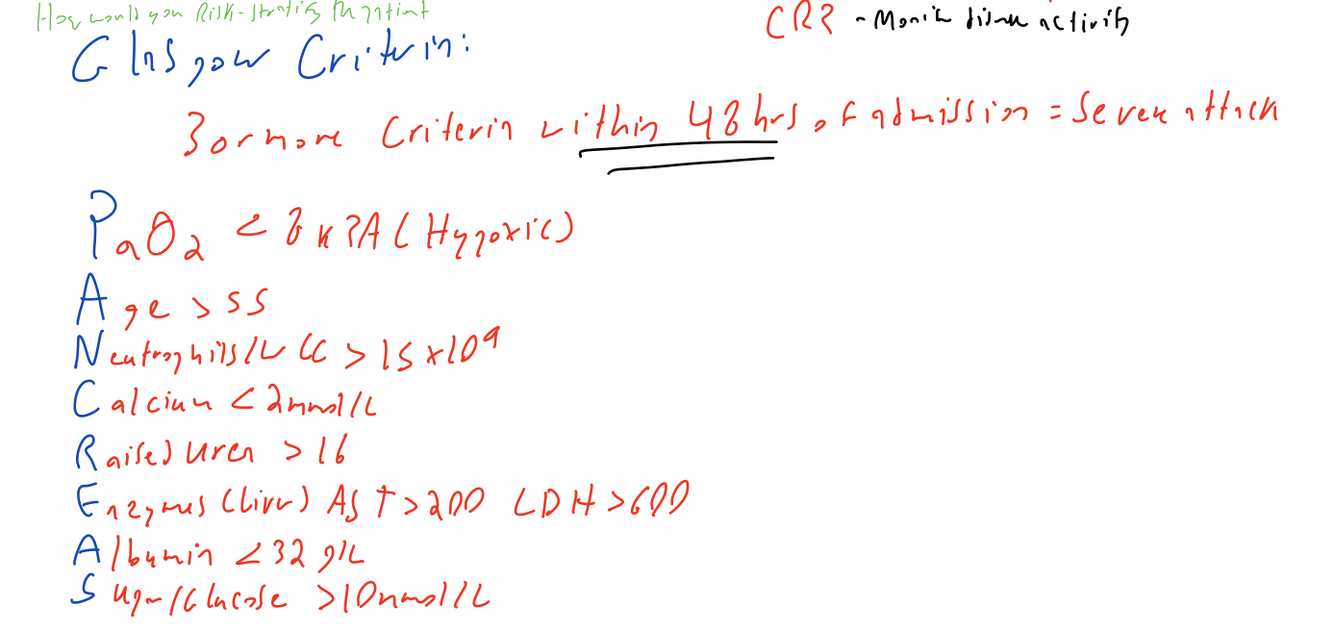 How would you Risk-stratify the patient
CRP - Monitor disease activity
Glasgow Criteria:
3 or more Criteria within 48 hrs of admission = Severe attack
PaO2 < 8 kPA (Hypoxic)
Age > 55
Neutrophils/WCC > 15 x10^9
Calcium < 2mmol/L
Raised Urea > 16
Enzymes (liver) AST > 200 LDH > 600
Albumin < 32 g/L
Sugar/Glucose > 10mmol/L